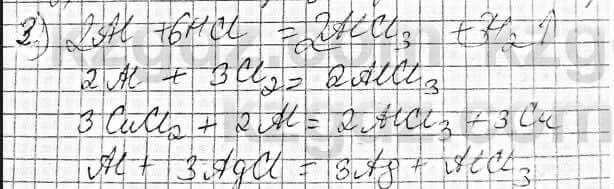 3) 2Al + 6HCl = 2AlCl₃ + 3H₂↑
2Al + 3Cl₂ = 2AlCl₃
3CuCl₂ + 2Al = 2AlCl₃ + 3Cu
Al + 3AgCl = 3Ag + AlCl₃